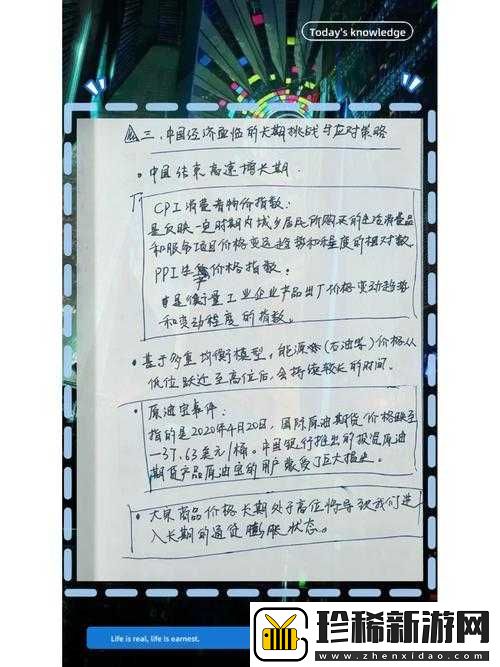 Today's knowledge
三、中国经济面临的长期挑战与应对策略
· 中国结束高速增长期.
CPI消费者物价指数:
是反映一定时期内城乡居民所购买的生活消费品
和服务项目价格变动趋势和程度的相对数.
PPI生产价格指数:
是衡量工业企业产品出厂价格变动趋势
和变动程度的指数。
· 基于多重均衡模型,能源(石油等)价格从
低位跃迁至高位后,会持续较长的时间.
· 原油宝事件:
指的是2020年4月20日,国际原油期货价格跌至
-37.63美元/桶。中国银行推出的投资原油
期货产品原油宝的用户蒙受了巨大损失。
· 大宗商品价格长期处于高位将导致我们进
入长期的通货膨胀状态。
Life is real, life is earnest.
珍稀新游网
www.zhenxidao.com